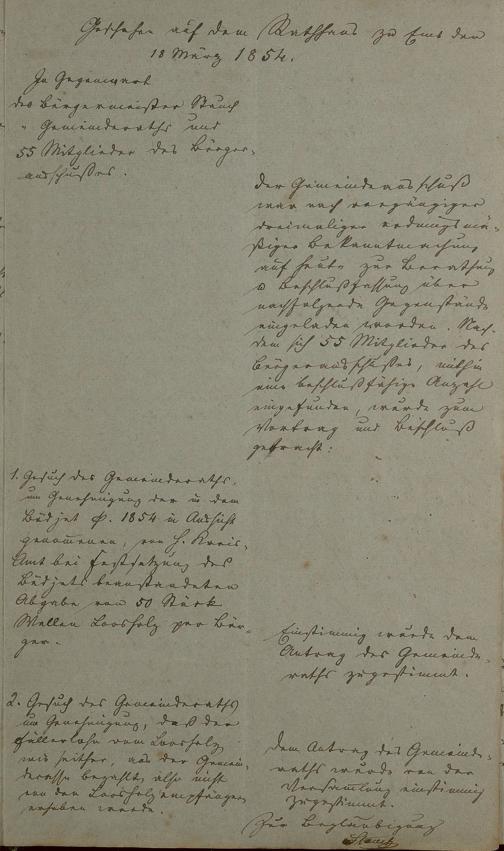 Geschehen auf dem Rathhaus zu Ems den
18 März 1854.
In Gegenwart
des Bürgermeister
" Gemeinderaths und
55 Mitglieder des Bürger-
ausschußes.
Der Gemeindeausschuß
war nach vorgängiger
dreimaliger ordnungsmä-
ßiger Bekanntmachung
auf heute zur Berathung
& Beschlußfassung über
nachfolgende Gegenstände
eingeladen worden. Nach-
dem sich 55 Mitglieder des
Bürgerausschußes, mithin
eine beschlußfähige Anzahl
eingefunden, wurde zum
Vortrag und Beschluß
gebracht:
1. Gesuch des Gemeinderaths
um Genehmigung der in dem
Büdjet p. 1854 in Aussicht
genommenen, von H. Kreis-
Amt bei Festsetzung des
Büdjets beanstandeten
Abgabe von 50 Stück
Wellen Loosholz pro Bür-
ger.
Einstimmig wurde dem
Antrag des Gemeinde-
raths zugestimmt.
2. Gesuch des Gemeinderaths
um Genehmigung, daß der
Fällerlohn vom Loosholz
wie seither, aus der Gemein-
dekasse bezahlt, also nicht
von den Loosholzempfängern
erhoben werde.
Dem Antrag des Gemeinde-
raths wurde von der
Versammlung einstimmig
zugestimmt.
Zur Beglaubigung